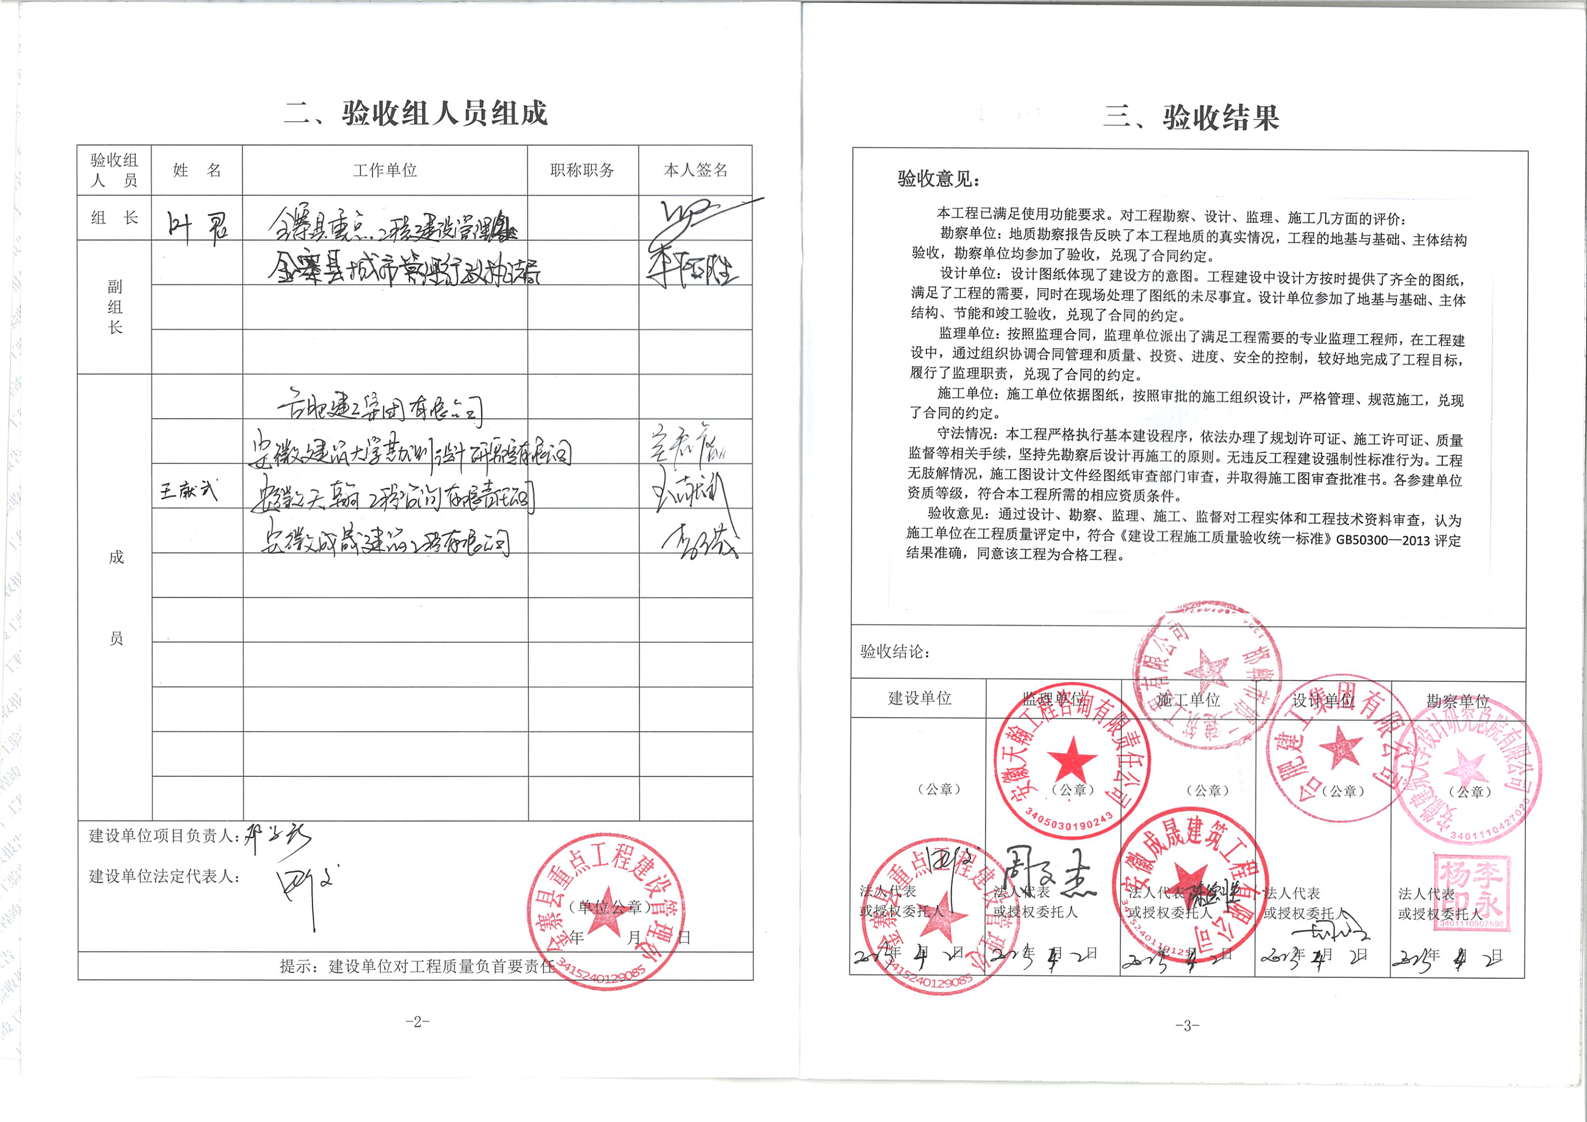 二、验收组人员组成
验收组人 员
姓 名
工作单位
职称职务
本人签名
组 长
叶君
金寨县重点工程建设管理处
副组长
金寨县城市管理行政执法局
成员
合肥建工集团有限公司
安徽建筑大学设计研究总院有限公司
王献武
安徽天翰工程咨询有限责任公司
王献武
安徽成晟建筑工程有限公司
建设单位项目负责人：
建设单位法定代表人：
（单位公章）
年 月 日
金寨县重点工程建设管理处
3415240129085
提示：建设单位对工程质量负首要责任
-2-
三、验收结果
验收意见：
本工程已满足使用功能要求。对工程勘察、设计、监理、施工几方面的评价：
勘察单位：地质勘察报告反映了本工程地质的真实情况，工程的地基与基础、主体结构
验收，勘察单位均参加了验收，兑现了合同约定。
设计单位：设计图纸体现了建设方的意图。工程建设中设计方按时提供了齐全的图纸，
满足了工程的需要，同时在现场处理了图纸的未尽事宜。设计单位参加了地基与基础、主体
结构、节能和竣工验收，兑现了合同的约定。
监理单位：按照监理合同，监理单位派出了满足工程需要的专业监理工程师，在工程建
设中，通过组织协调合同管理和质量、投资、进度、安全的控制，较好地完成了工程目标，
履行了监理职责，兑现了合同的约定。
施工单位：施工单位依据图纸，按照审批的施工组织设计，严格管理、规范施工，兑现
了合同的约定。
守法情况：本工程严格执行基本建设程序，依法办理了规划许可证、施工许可证、质量
监督等相关手续，坚持先勘察后设计再施工的原则。无违反工程建设强制性标准行为。工程
无肢解情况，施工图设计文件经图纸审查部门审查，并取得施工图审查批准书。各参建单位
资质等级，符合本工程所需的相应资质条件。
验收意见：通过设计、勘察、监理、施工、监督对工程实体和工程技术资料审查，认为
施工单位在工程质量评定中，符合《建设工程施工质量验收统一标准》GB50300—2013 评定
结果准确，同意该工程为合格工程。
验收结论：
建设单位
监理单位
施工单位
设计单位
勘察单位
（公章）
（公章）
（公章）
（公章）
（公章）
安徽天翰工程咨询有限责任公司
3405030190243
安徽成晟建筑工程有限公司
合肥建工集团有限公司
安徽建筑大学设计研究总院有限公司
3401110427023
金寨县重点工程建设管理处
3415240129085
周文杰
李永杨印
3401110507598
法人代表
或授权委托人
法人代表
或授权委托人
法人代表
或授权委托人
法人代表
或授权委托人
法人代表
或授权委托人
2023年4月2日
2023年4月2日
2023年4月2日
2023年4月2日
2023年4月2日
-3-